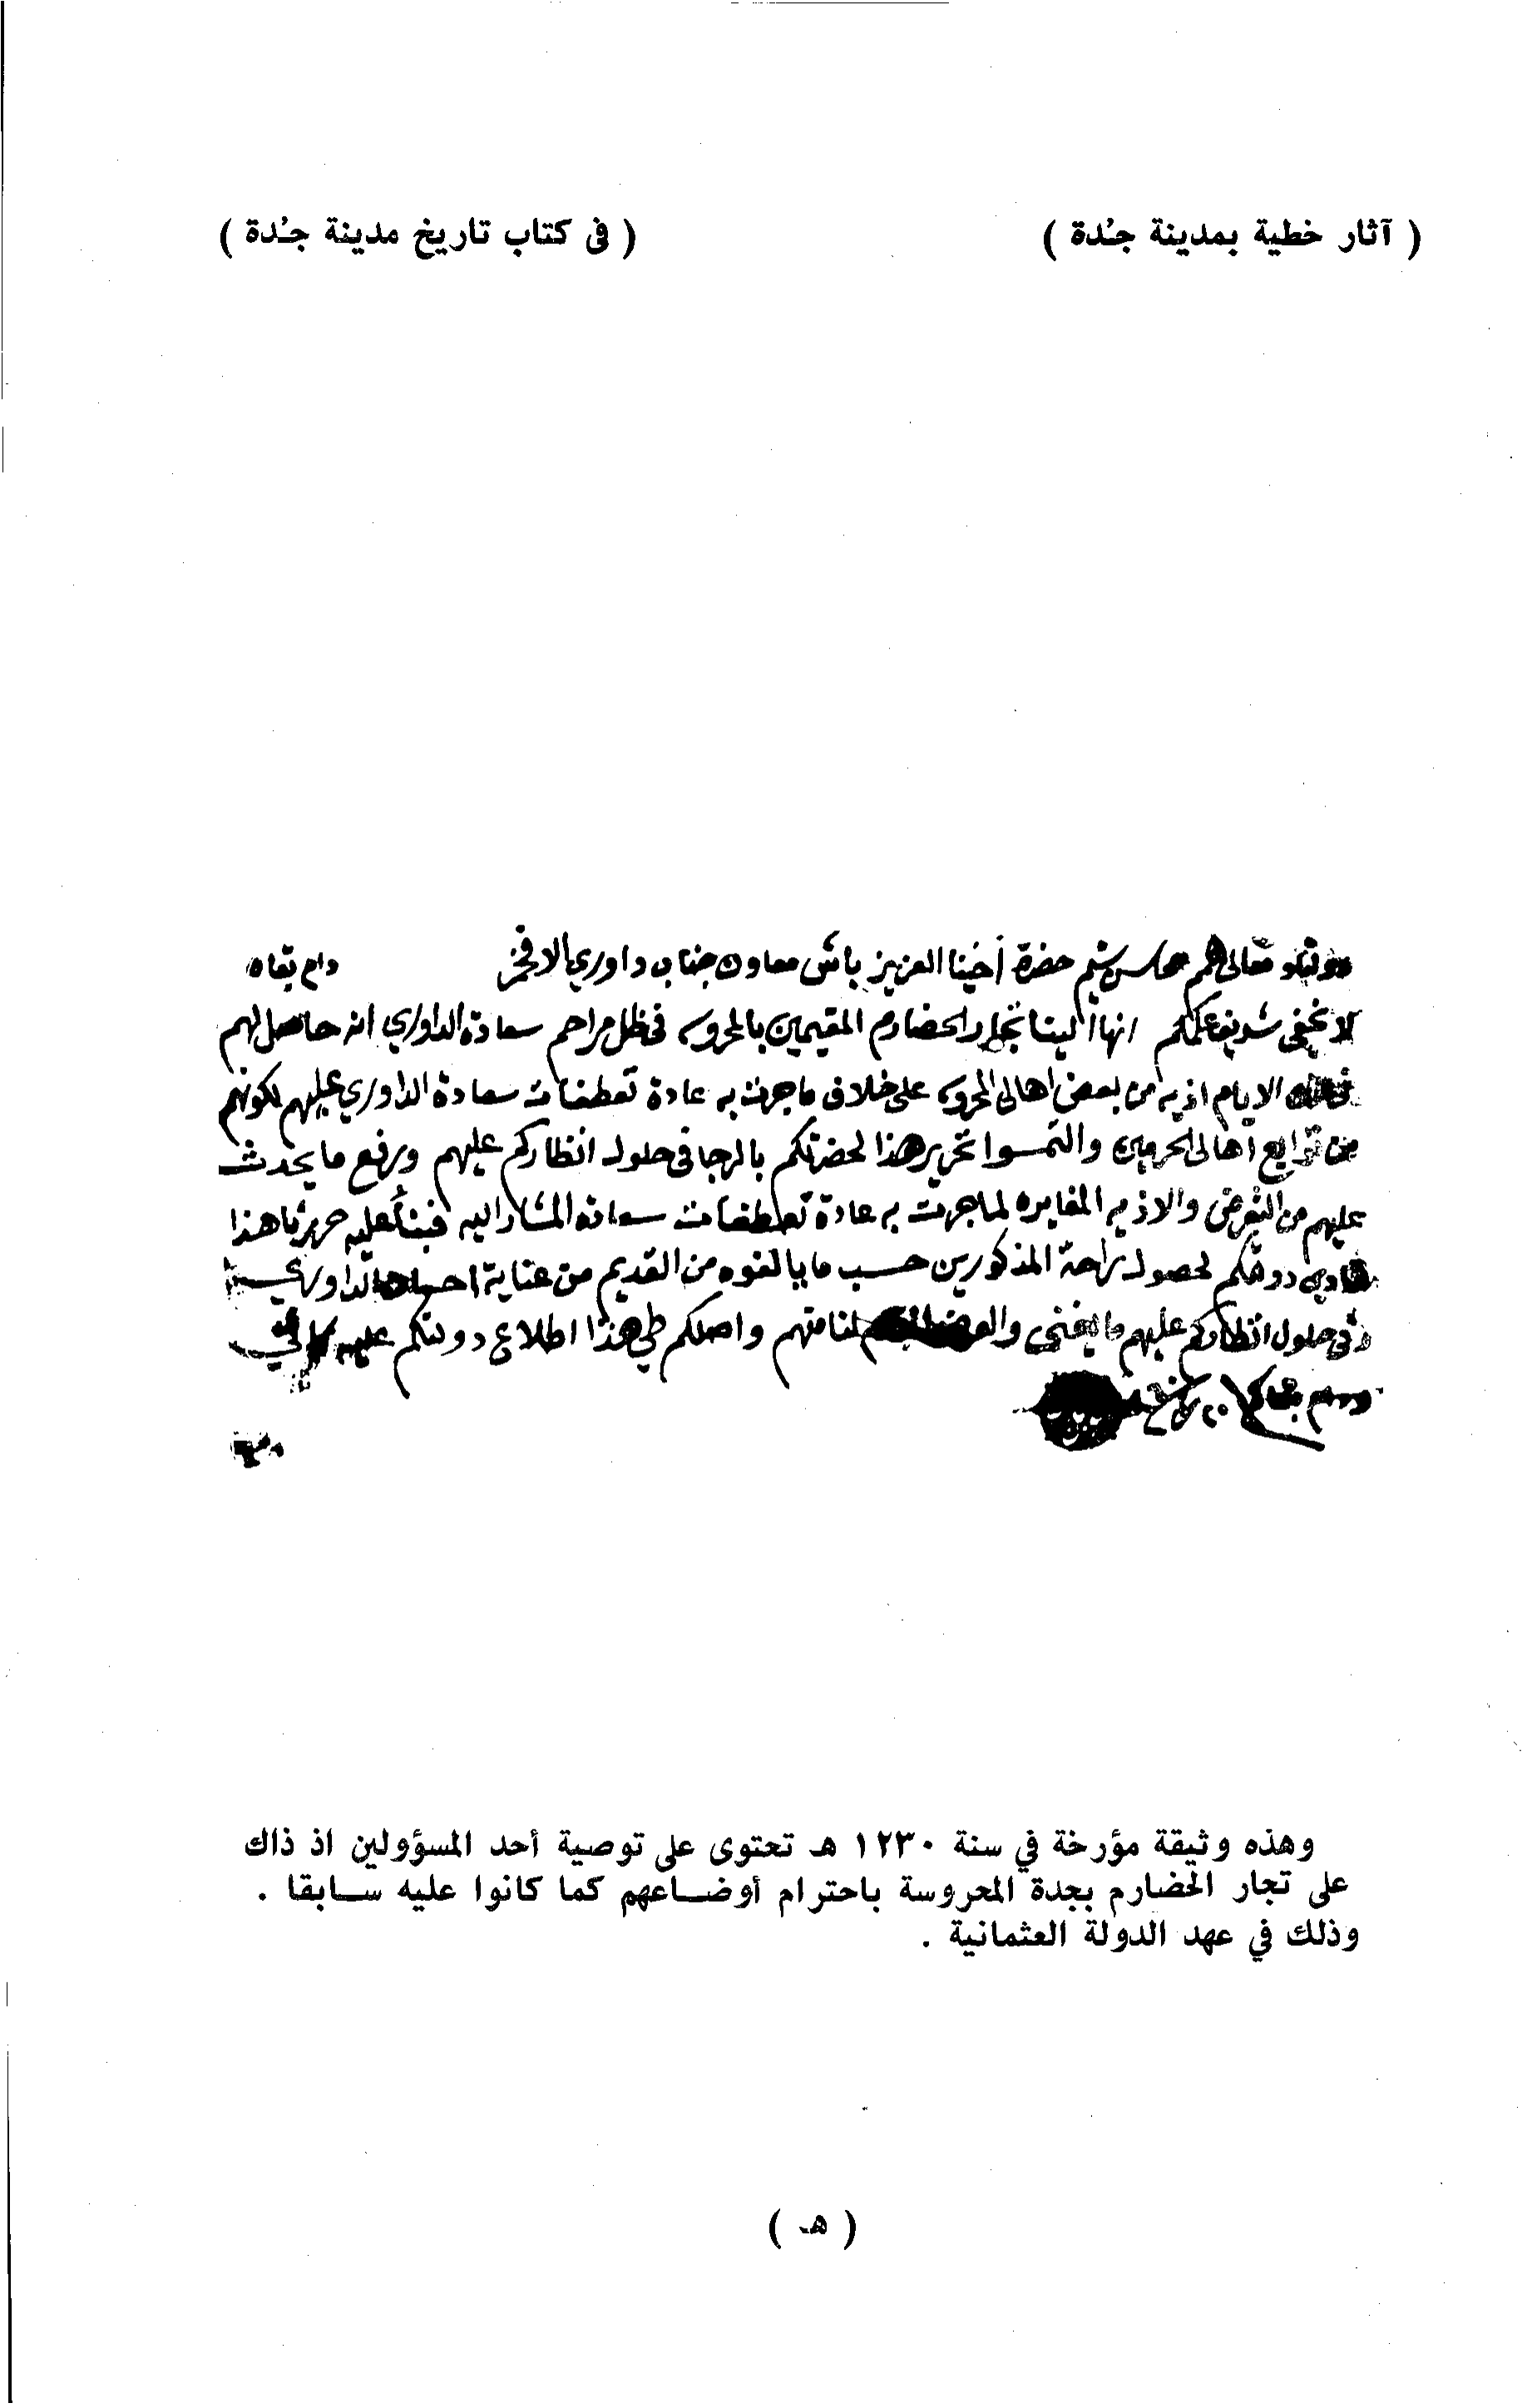 ( آثار خطية بمدينة جُدة ) ( فى كتاب تاريخ مدينة جُدة )
حضرة أخينا العزيز باش معاون جناب داوري الافخر دام بقاه
لا يخفى شريف علمكم انها الينا تجار الحضارم المقيمين بالمحروسه فى ظل مراحم سعادة الداوري انه حاصل لهم
الايام اذيه من بعض اهالى المحروسه على خلاف ماجرت به عادة تعطفات سعادة الداوري عليهم لكونهم
من توابع اهالى الحرمين والتمسوا تحرير هذا لحضرتكم بالرجا فى حلول انظاركم عليهم ورفع ما يحدث
عليهم من التعرض والاذيه المغايره لماجرت به عادة تعطفات سعادة المشار اليه فبنأ عليه حررنا هذا
دولتكم لحصول راحة المذكورين حسب ما يالفوه من القديم من عناية
وفى حلول انظاركم عليهم ما يغنى لنامتهم واصلكم طي هذا اطلاع دولتكم عليه
وهذه وثيقة مؤرخة في سنة ١٢٣٠ هـ تحتوى على توصية أحد المسؤولين اذ ذاك
على تجار الحضارم بجدة المحروسة باحترام أوضاعهم كما كانوا عليه سابقا .
وذلك في عهد الدولة العثمانية .
( هـ )